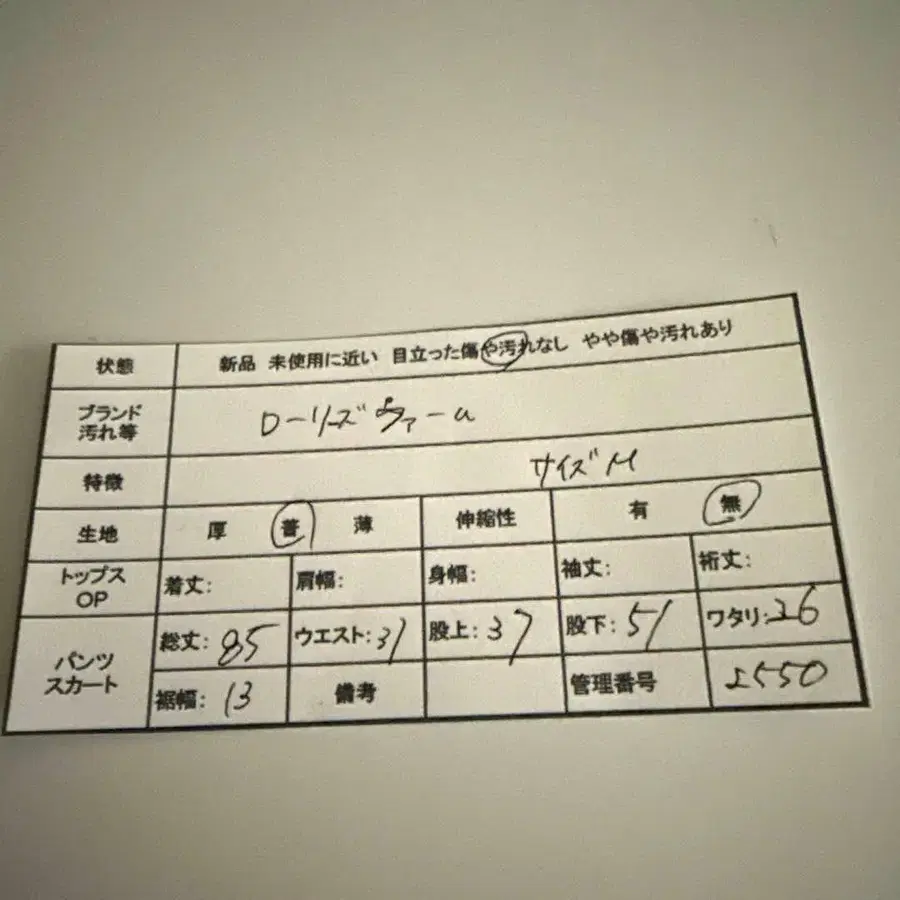 状態 新品 未使用に近い 目立った傷や汚れなし やや傷や汚れあり
ブランド
汚れ等 ローリーズファーム
特徴 サイズM
生地 厚 普 薄 伸縮性 有 無
トップス
OP 着丈: 肩幅: 身幅: 袖丈: 裄丈:
パンツ
スカート 総丈:85 ウエスト:31 股上:37 股下:51 ワタリ:26
裾幅:13 備考 管理番号 2550